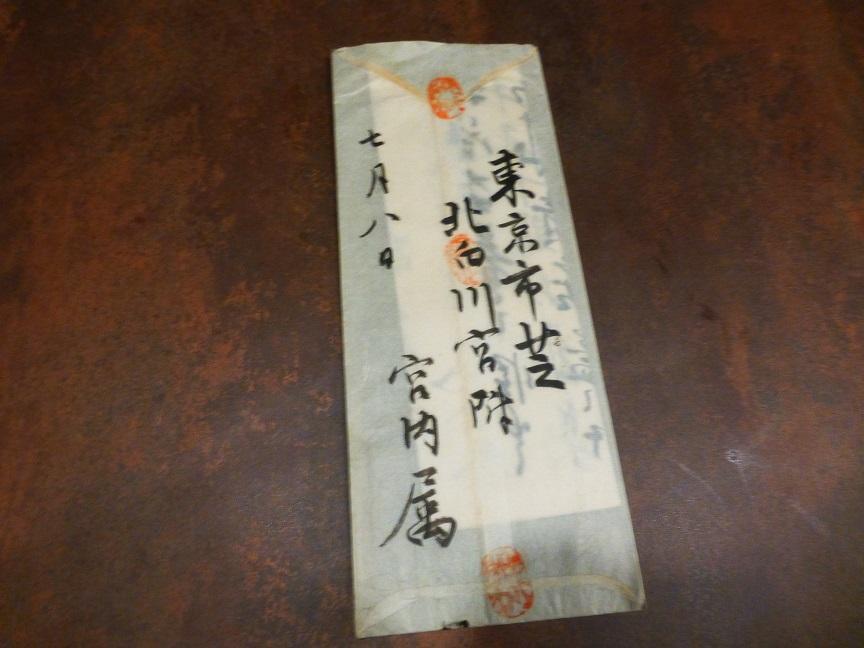 東京市芝
北白川宮附
宮内属
七月八日